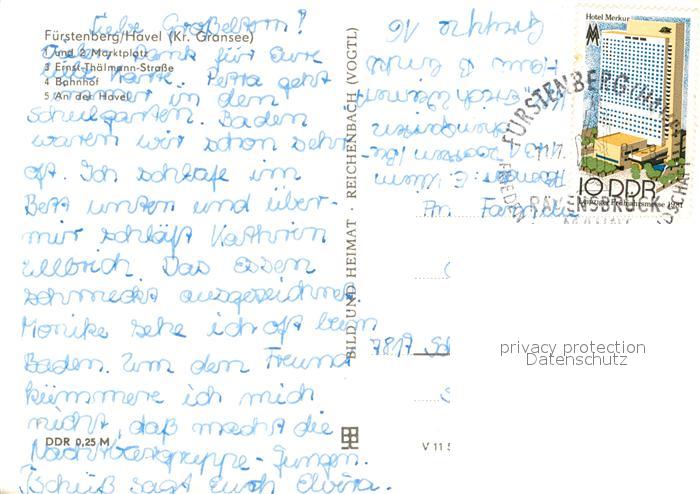 Liebe Großeltern!
Fürstenberg/Havel (Kr. Gransee)
1 und 2 Marktplatz
3 Ernst-Thälmann-Straße
4 Bahnhof
5 An der Havel
für Eure
liebe Karte. Petra geht
immer in den
Schulgarten. Baden
waren wir schon sehr
oft. Ich schlafe im
Bett unten und über
mir schläft Kathrin
Ullbrich. Das Essen
schmeckt ausgezeichnet.
Monika sehe ich oft beim
Baden. Um den Freund
kümmere ich mich
nicht, daß macht die
Nachbargruppe-Jungen.
Tschüß sagt Euch Elvira.
DDR 0,25 M
BILD UND HEIMAT · REICHENBACH (VOGTL)
V 11 5
Gruppe 16
Haus B
An Familie
7817
Hotel Merkur
MM
10 DDR
Leipziger Frühjahrsmesse 1981
FÜRSTENBERG
RAVENSBRÜCK
privacy protection
Datenschutz